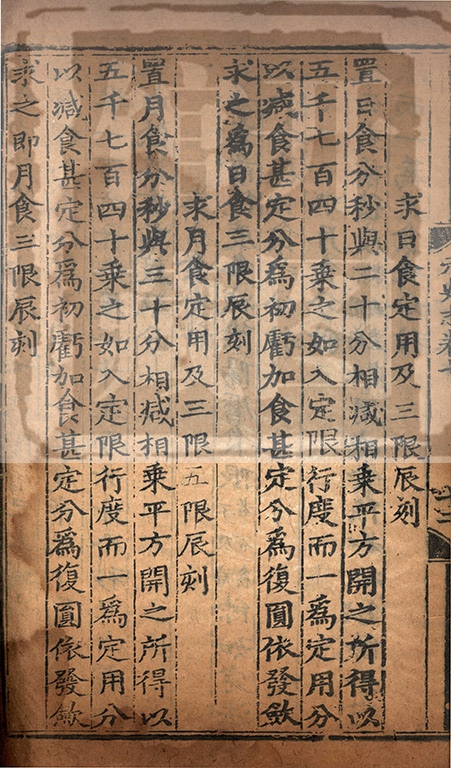 求日食定用及三限辰刻
置日食分秒與二十分相減相乗平方開之所得以
五千七百四十乗之如入定限行度而一為定用分
以減食甚定分為初虧加食甚定分為復圓依發斂
求之為日食三限辰刻
求月食定用及三限五限辰刻
置月食分秒與三十分相减相乗平方開之所得以
五千七百四十乗之如入定限行度而一為定用分
以减食甚定分為初虧加食甚定分為復圓依發斂
求之即月食三限辰刻